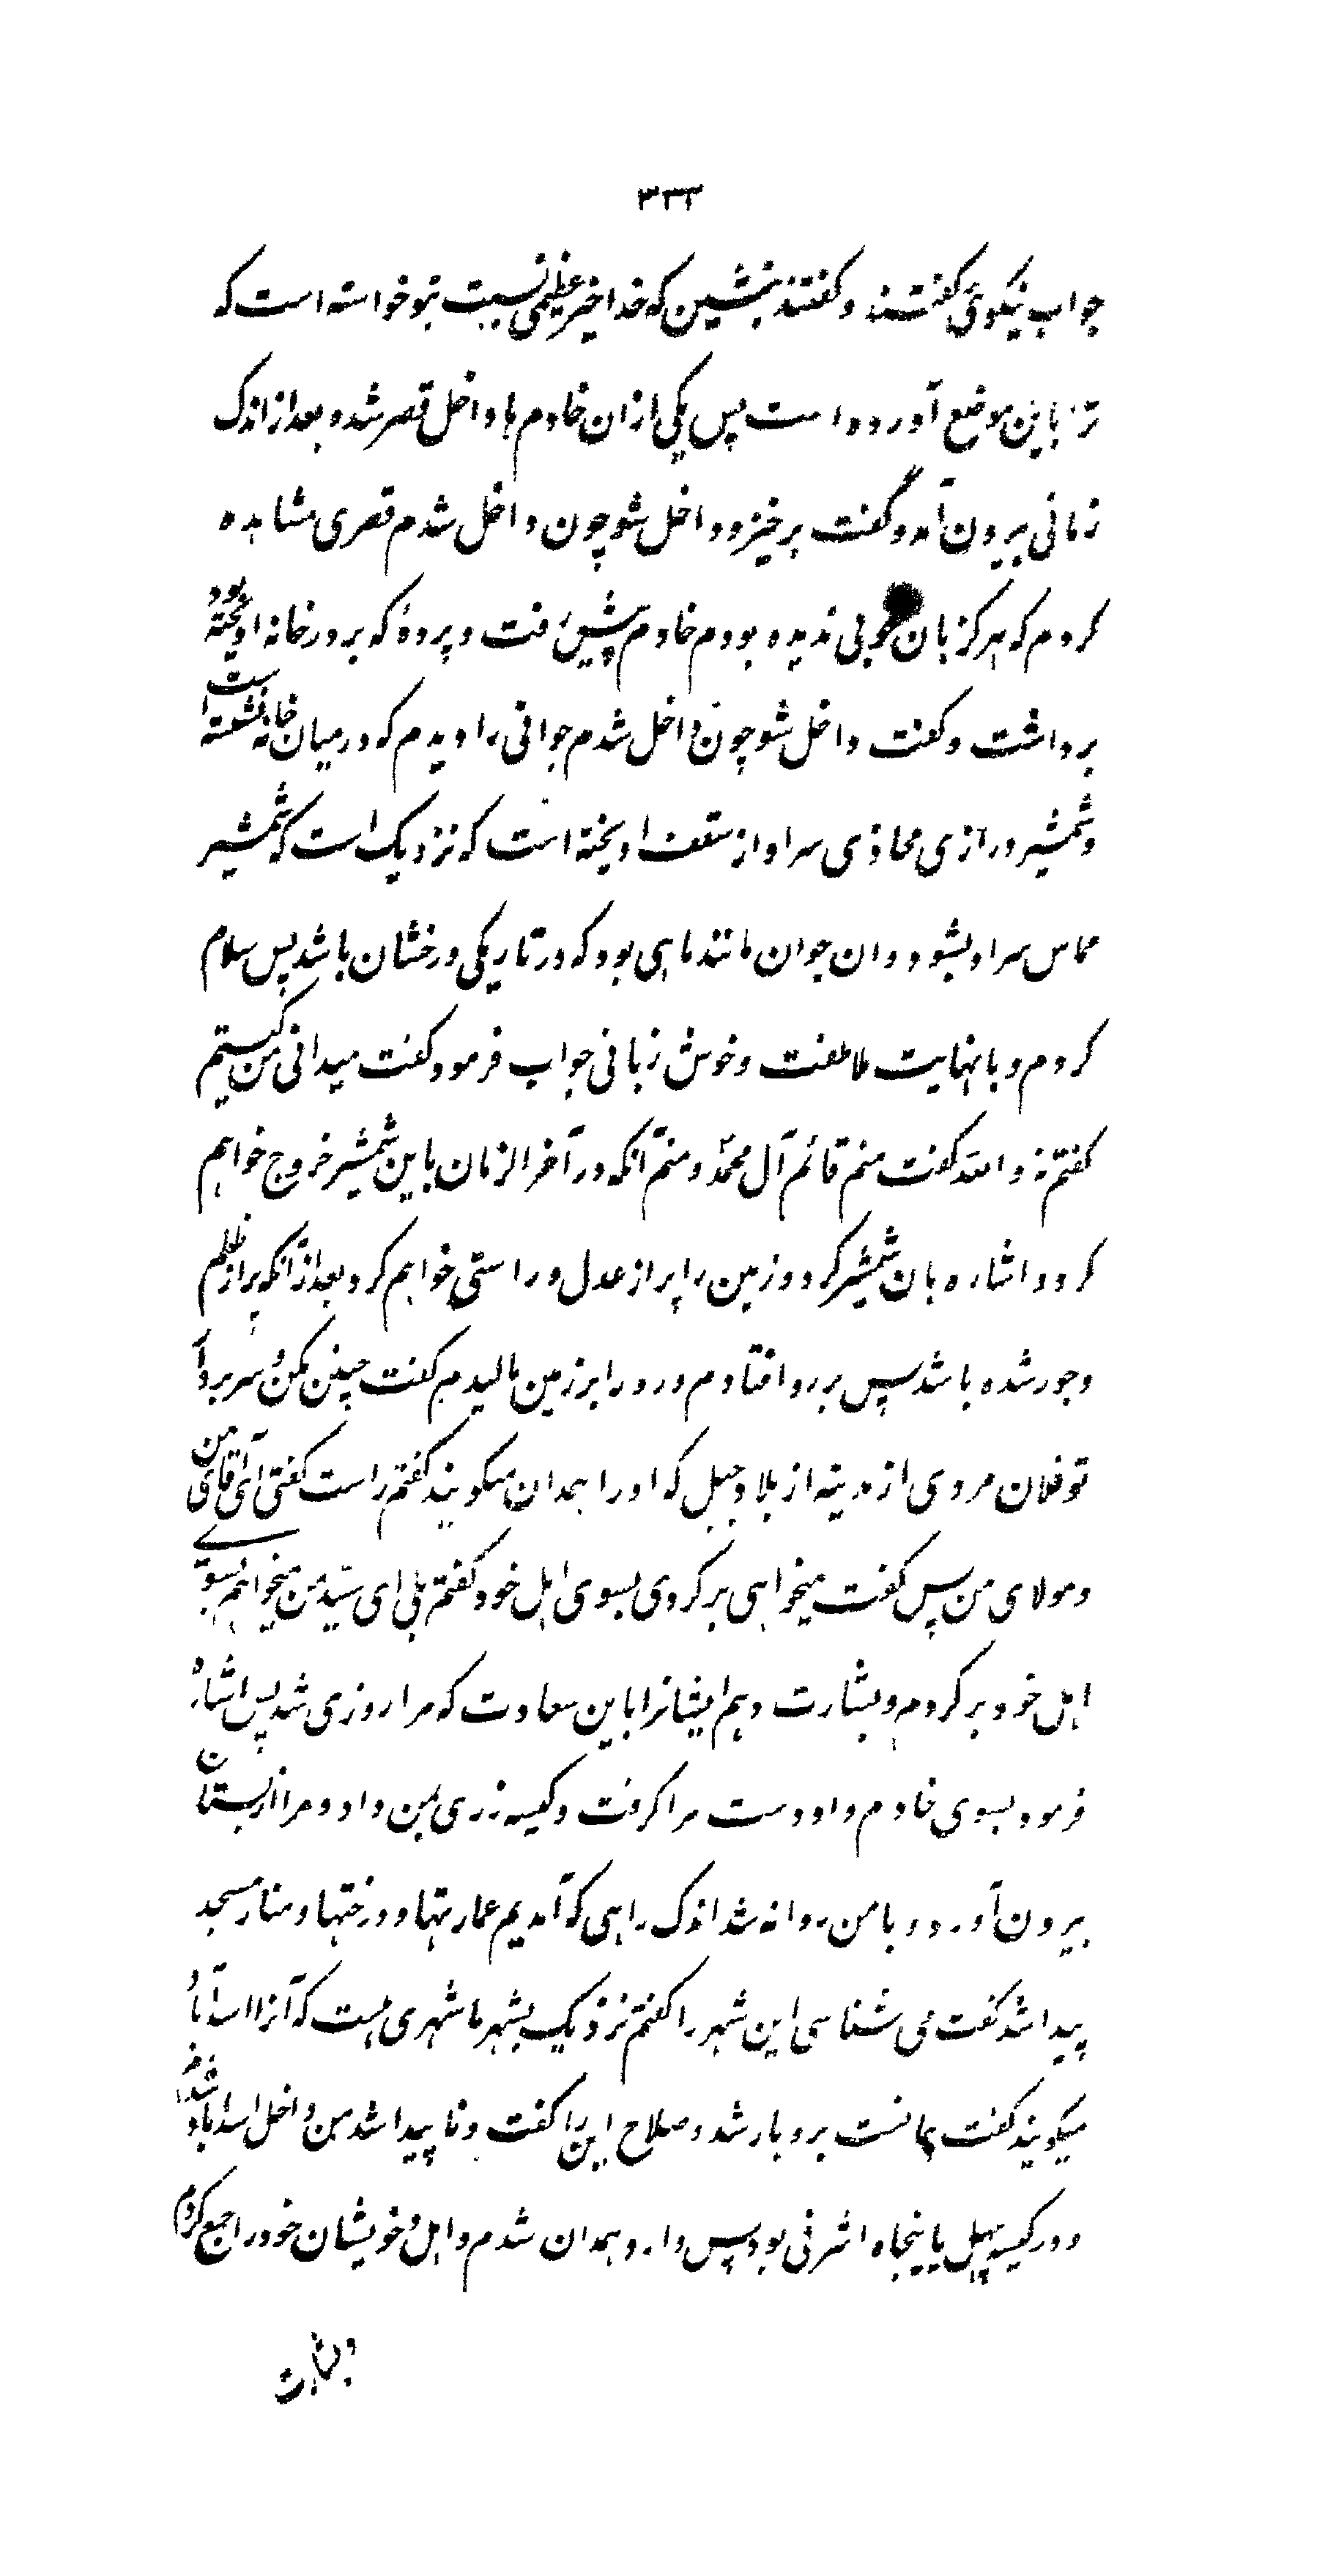 ۳۳۲
جواب نیکوئی گفتند و گفتند بنشین که خدا خیر عظیمی نسبت بتو خواسته است که
ترا باین موضع آورده است پس یکی ازان خادم ها داخل قصر شد و بعد از اندک
زمانی بیرون آمد و گفت برخیز و داخل شو چون داخل شدم قصری مشاهده
کردم که هرگز بان خوبی ندیده بودم خادم پیش رفت و پردهٔ که بر در خانه اویخته بود
برداشت و گفت داخل شو چون داخل شدم جوانی را دیدم که در میان خانه نشسته است
و شمشیر درازی محاذی سر او از سقف اویخته است که نزدیک است که شمشیر
مماس سر او بشود و ان جوان مانند ماهی بود که در تاریکی درخشان باشد پس سلام
کردم و با نهایت ملاطفت و خوش زبانی جواب فرمود گفت میدانی من کیستم
گفتم نه والله گفت منم قائم آل محمدؐ و منم آنکه در آخر الزمان باین شمشیر خروج خواهم
کرد و اشاره بان شمشیر کرد و زمین را پر از عدل و راستی خواهم کرد بعد از آنکه پر از ظلم
و جور شده باشد پس بر رو افتادم و رو را بر زمین مالیدم گفت چنین مکن و سر بردار
تو فلان مردی از مدینه از بلاد جبل که او را همدان میگویند گفتم راست گفتی ای آقای من
و مولای من پس گفت میخواهی برگردی بسوی اهل خود گفتم بلی ای سیّد من میخواهم بسوی
اهل خود برگردم و بشارت دهم ایشانرا باین سعادت که مرا روزی شد پس اشاره
فرمود بسوی خادم و او دست مرا گرفت و کیسه زری بمن داد و مرا از بستان
بیرون آورد و با من روانه شد اندک راهی که آمدیم عمارتها و درختها و منار مسجد
پیدا شد گفت می شناسی این شهر را گفتم نزدیک بشهر ما شهری هست که آنرا اسدآباد
میگویند گفت همانست برو بارشد و صلاح این را گفت و ناپیدا شد من داخل اسداباد شدم
و در کیسه چهل یا پنجاه اشرفی بود پس وارد همدان شدم و اهل و خویشان خود را جمع کردم
و بشارت